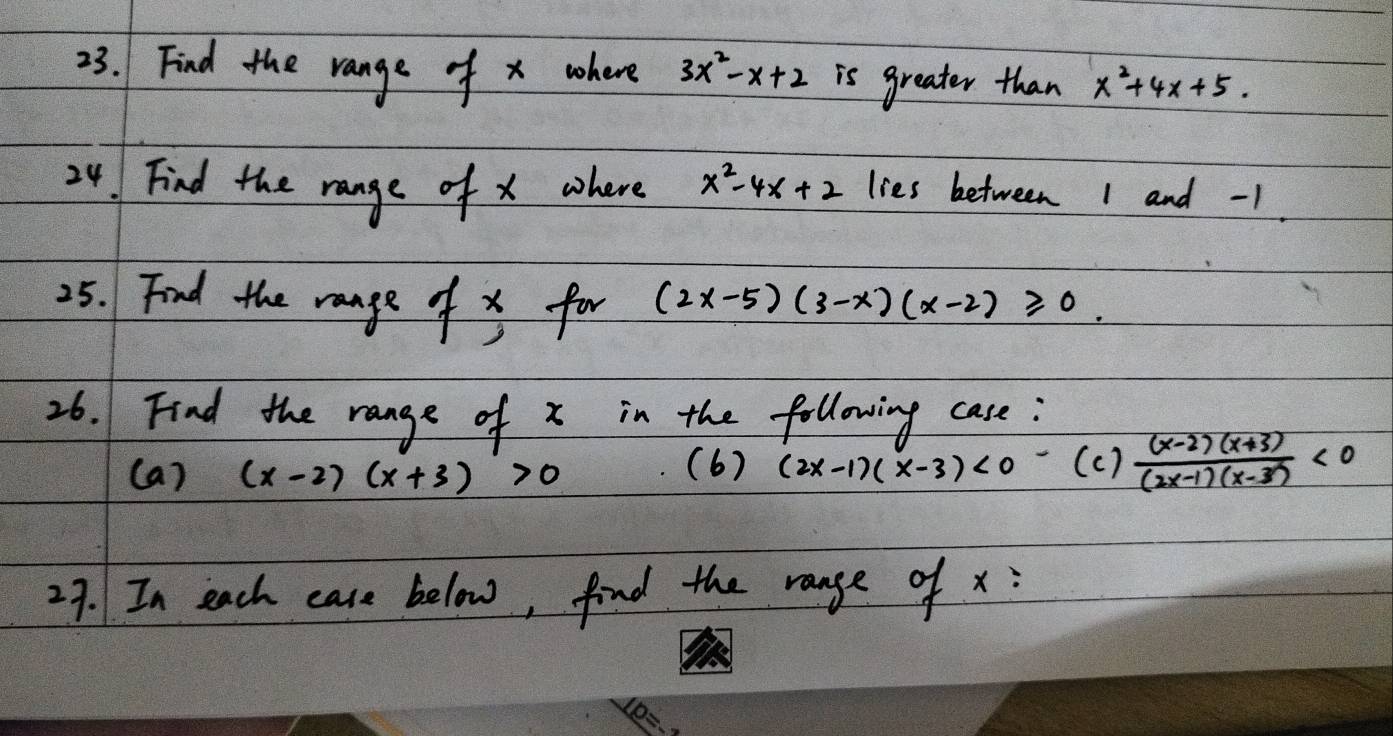 23. Find the range of x where 3x²-x+2 is greater than x²+4x+5.
24. Find the range of x where x²-4x+2 lies between 1 and -1.
25. Find the range of x, for (2x-5)(3-x)(x-2) ⩾ 0.
26. Find the range of x in the following case:
(a) (x-2)(x+3) >0 (b) (2x-1)(x-3)<0 (c) \frac{(x-2)(x+3)}{(2x-1)(x-3)} < 0
27. In each case below, find the range of x: